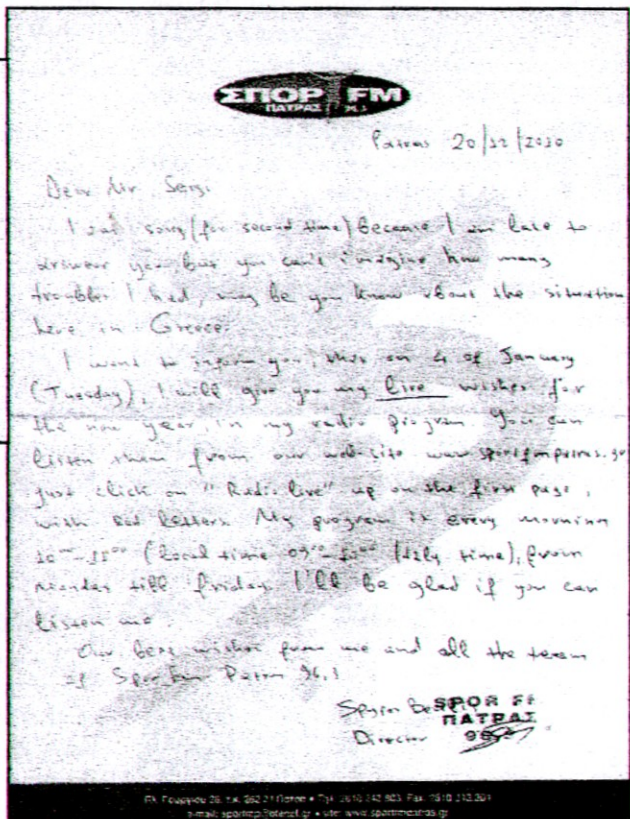 ΣΠΟΡ FM
ΠΑΤΡΑΣ 96.3
Patras 20/12/2010
Dear Mr. Sergi
I am sorry (for second time) because I am late to
answear you, but you can't imagine how many
troubles I had, may be you know about the situation
here in Greece.
I want to inform you, that on 4 of January
(Tuesday), I will give you my live wishes for
the new year, in my radio program. You can
listen them from our web-site www.sportfmpatras.gr
just click on "Radio live" up on the first page,
with red letters. My program is every morning
10⁰⁰-11⁰⁰ (local time 09⁰⁰-10⁰⁰ Italy time), from
monday till friday. I'll be glad if you can
listen me.
Our best wishes from me and all the team
of Spor Fm Patras 96,3
Spyros
Director
SPOR FM
ΠΑΤΡΑΣ
Πλ. Γεωργίου 26, τ.κ. 262 21 Πάτρα • Τηλ. 2610 242.603, Fax:
e-mail: • site: www.sportfmpatras.gr